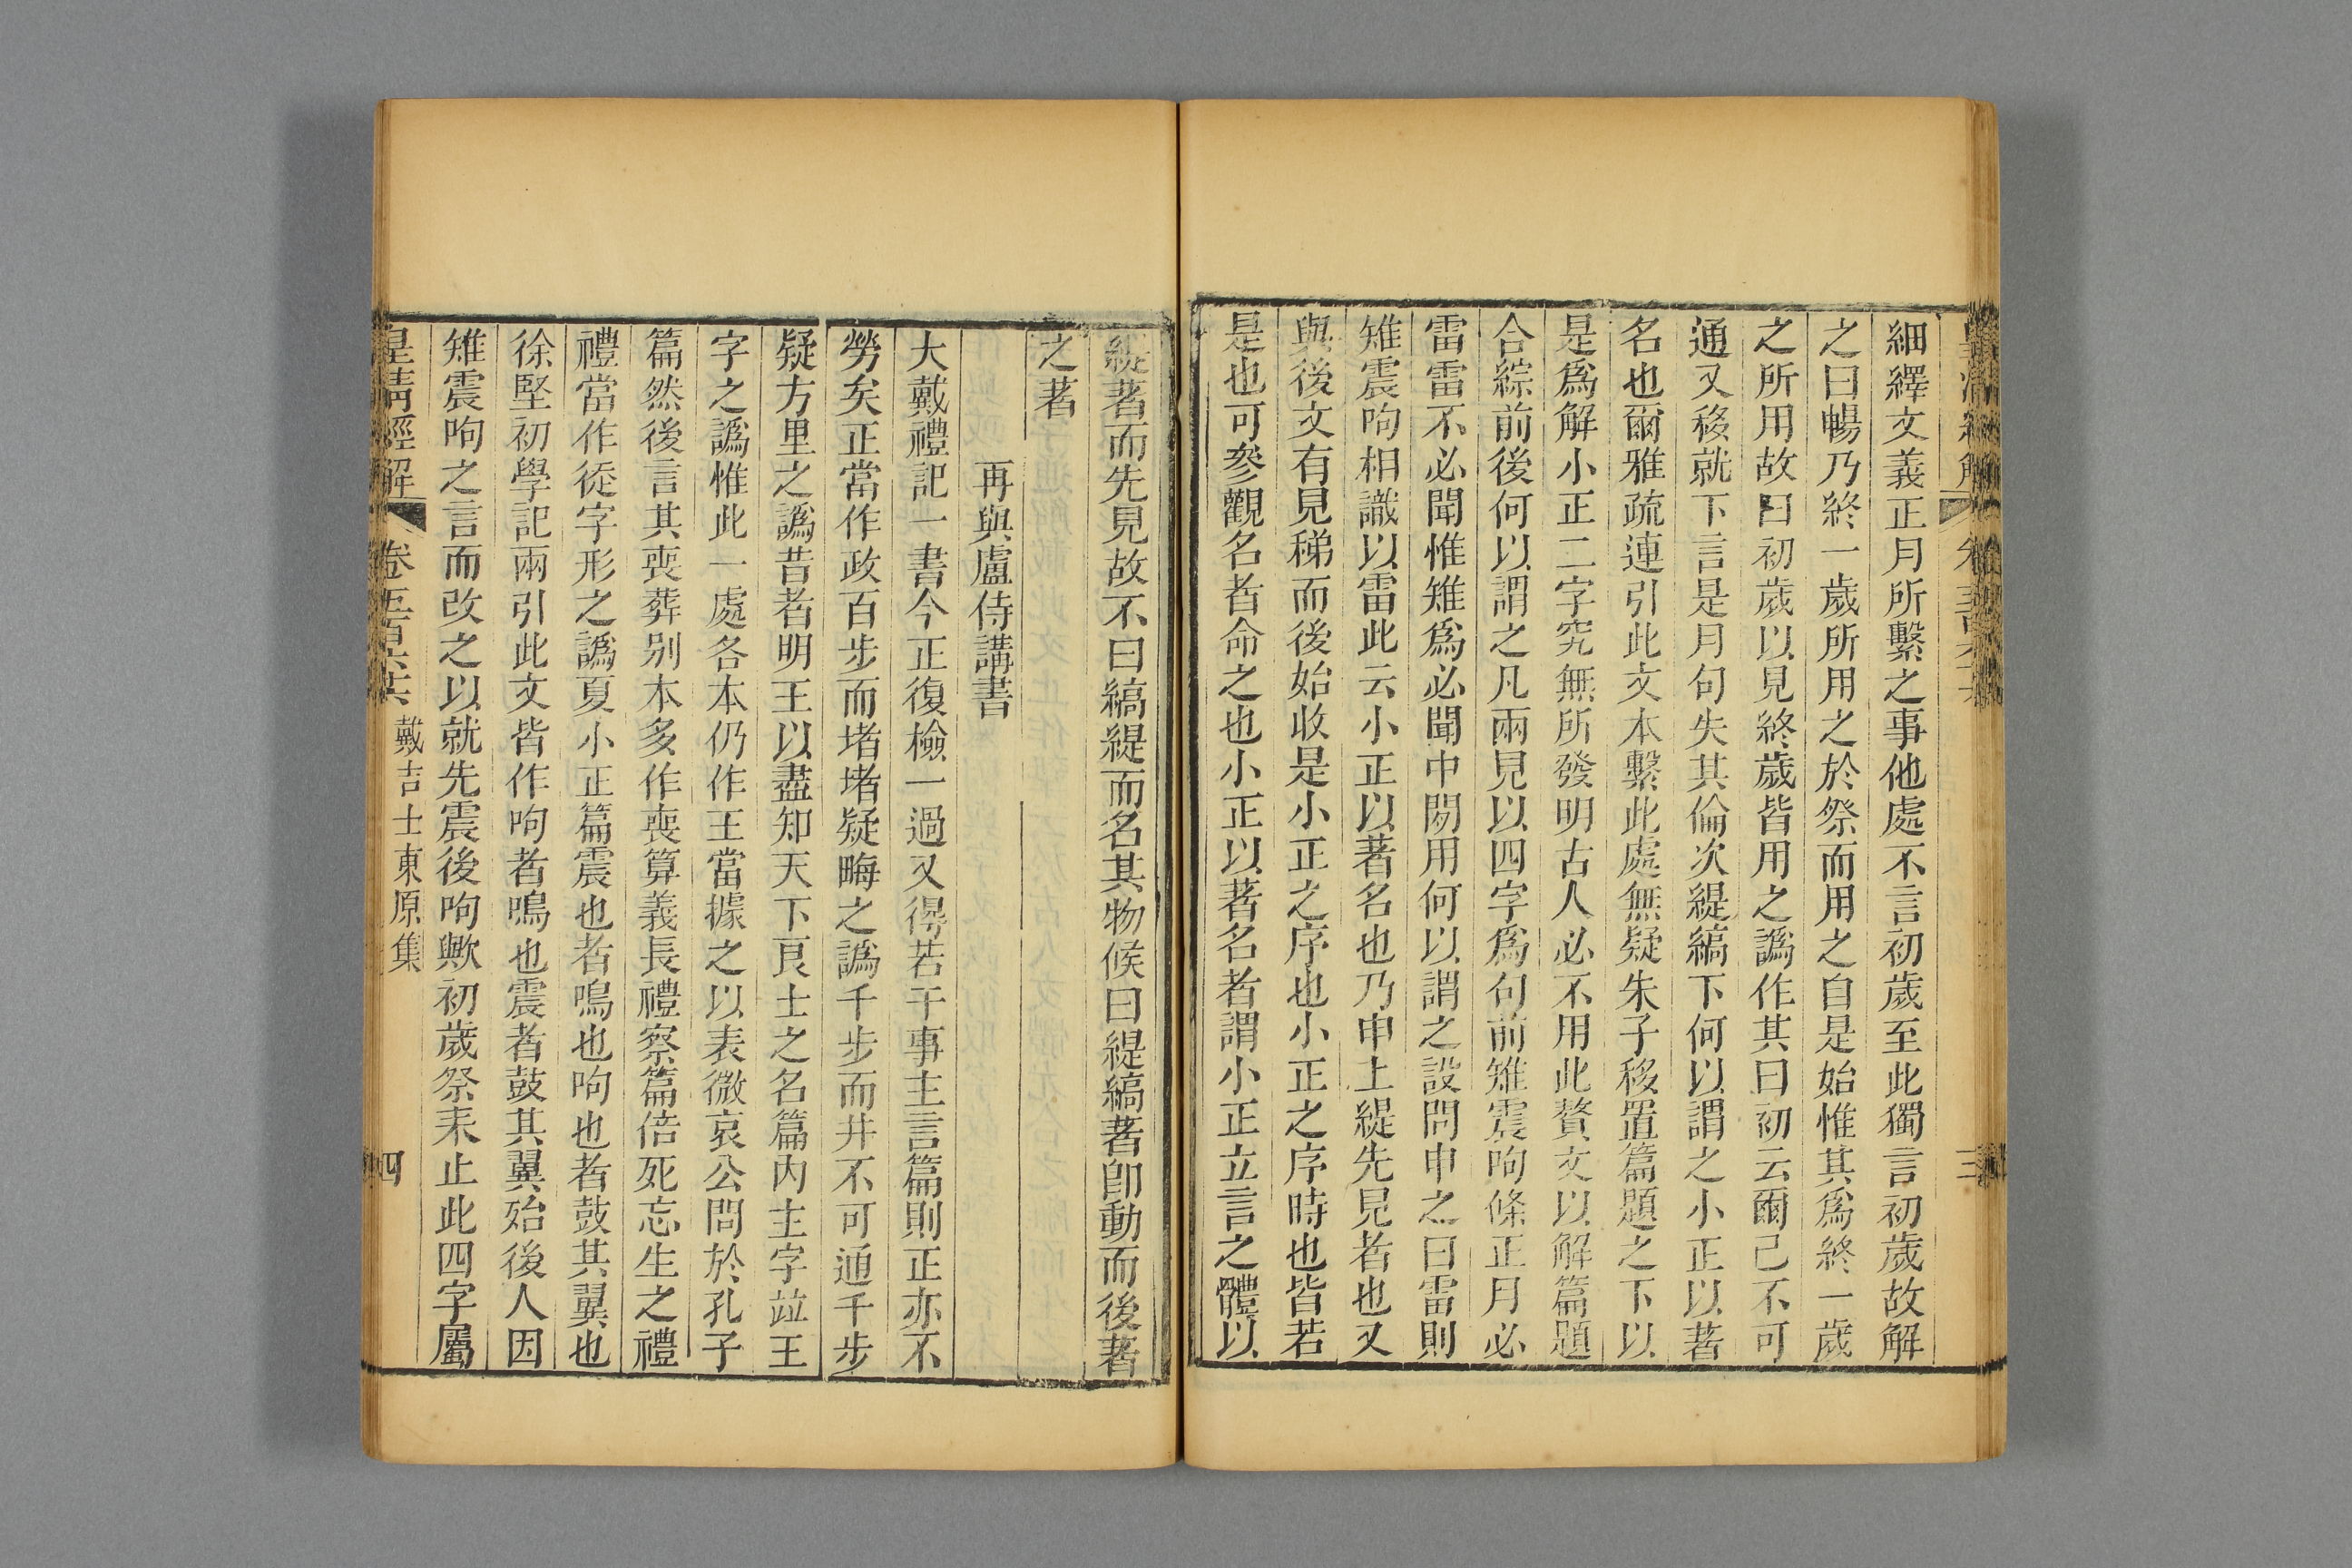 細繹文義正月所繫之事他處不言初歲至此獨言初歲故解
之曰暢乃終一歲所用之於祭而用之自是始惟其爲終一歲
之所用故曰初歲以見終歲皆用之譌作其曰初云爾己不可
通又移就下言是月句失其倫次緹縞下何以謂之小正以著
名也爾雅疏連引此文本繫此處無疑朱子移置篇題之下以
是爲解小正二字究無所發明古人必不用此贅文以解篇題
合綜前後何以謂之凡兩見以四字爲句前雉震呴條正月必
雷雷不必聞惟雉爲必聞中閒用何以謂之設問申之曰雷則
雉震呴相識以雷此云小正以著名也乃申上緹先見者也又
與後文有見稊而後始收是小正之序也小正之序時也皆若
是也可參觀名者命之也小正以著名者謂小正立言之體以
緹著而先見故不曰縞緹而名其物候曰緹縞著卽動而後著
之著
再與盧侍講書
大戴禮記一書今正復檢一過又得若干事主言篇則正亦不
勞矣正當作政百步而堵堵疑畮之譌千步而井不可通千步
疑方里之譌昔者明王以盡知天下良士之名篇內主字竝王
字之譌惟此一處各本仍作王當據之以表微哀公問於孔子
篇然後言其喪葬別本多作喪算義長禮察篇倍死忘生之禮
禮當作從字形之譌夏小正篇震也者鳴也呴也者鼓其翼也
徐堅初學記兩引此文皆作呴者鳴也震者鼓其翼殆後人因
雉震呴之言而改之以就先震後呴歟初歲祭耒止此四字屬
皇清經解
卷五百六十六
戴吉士東原集
四